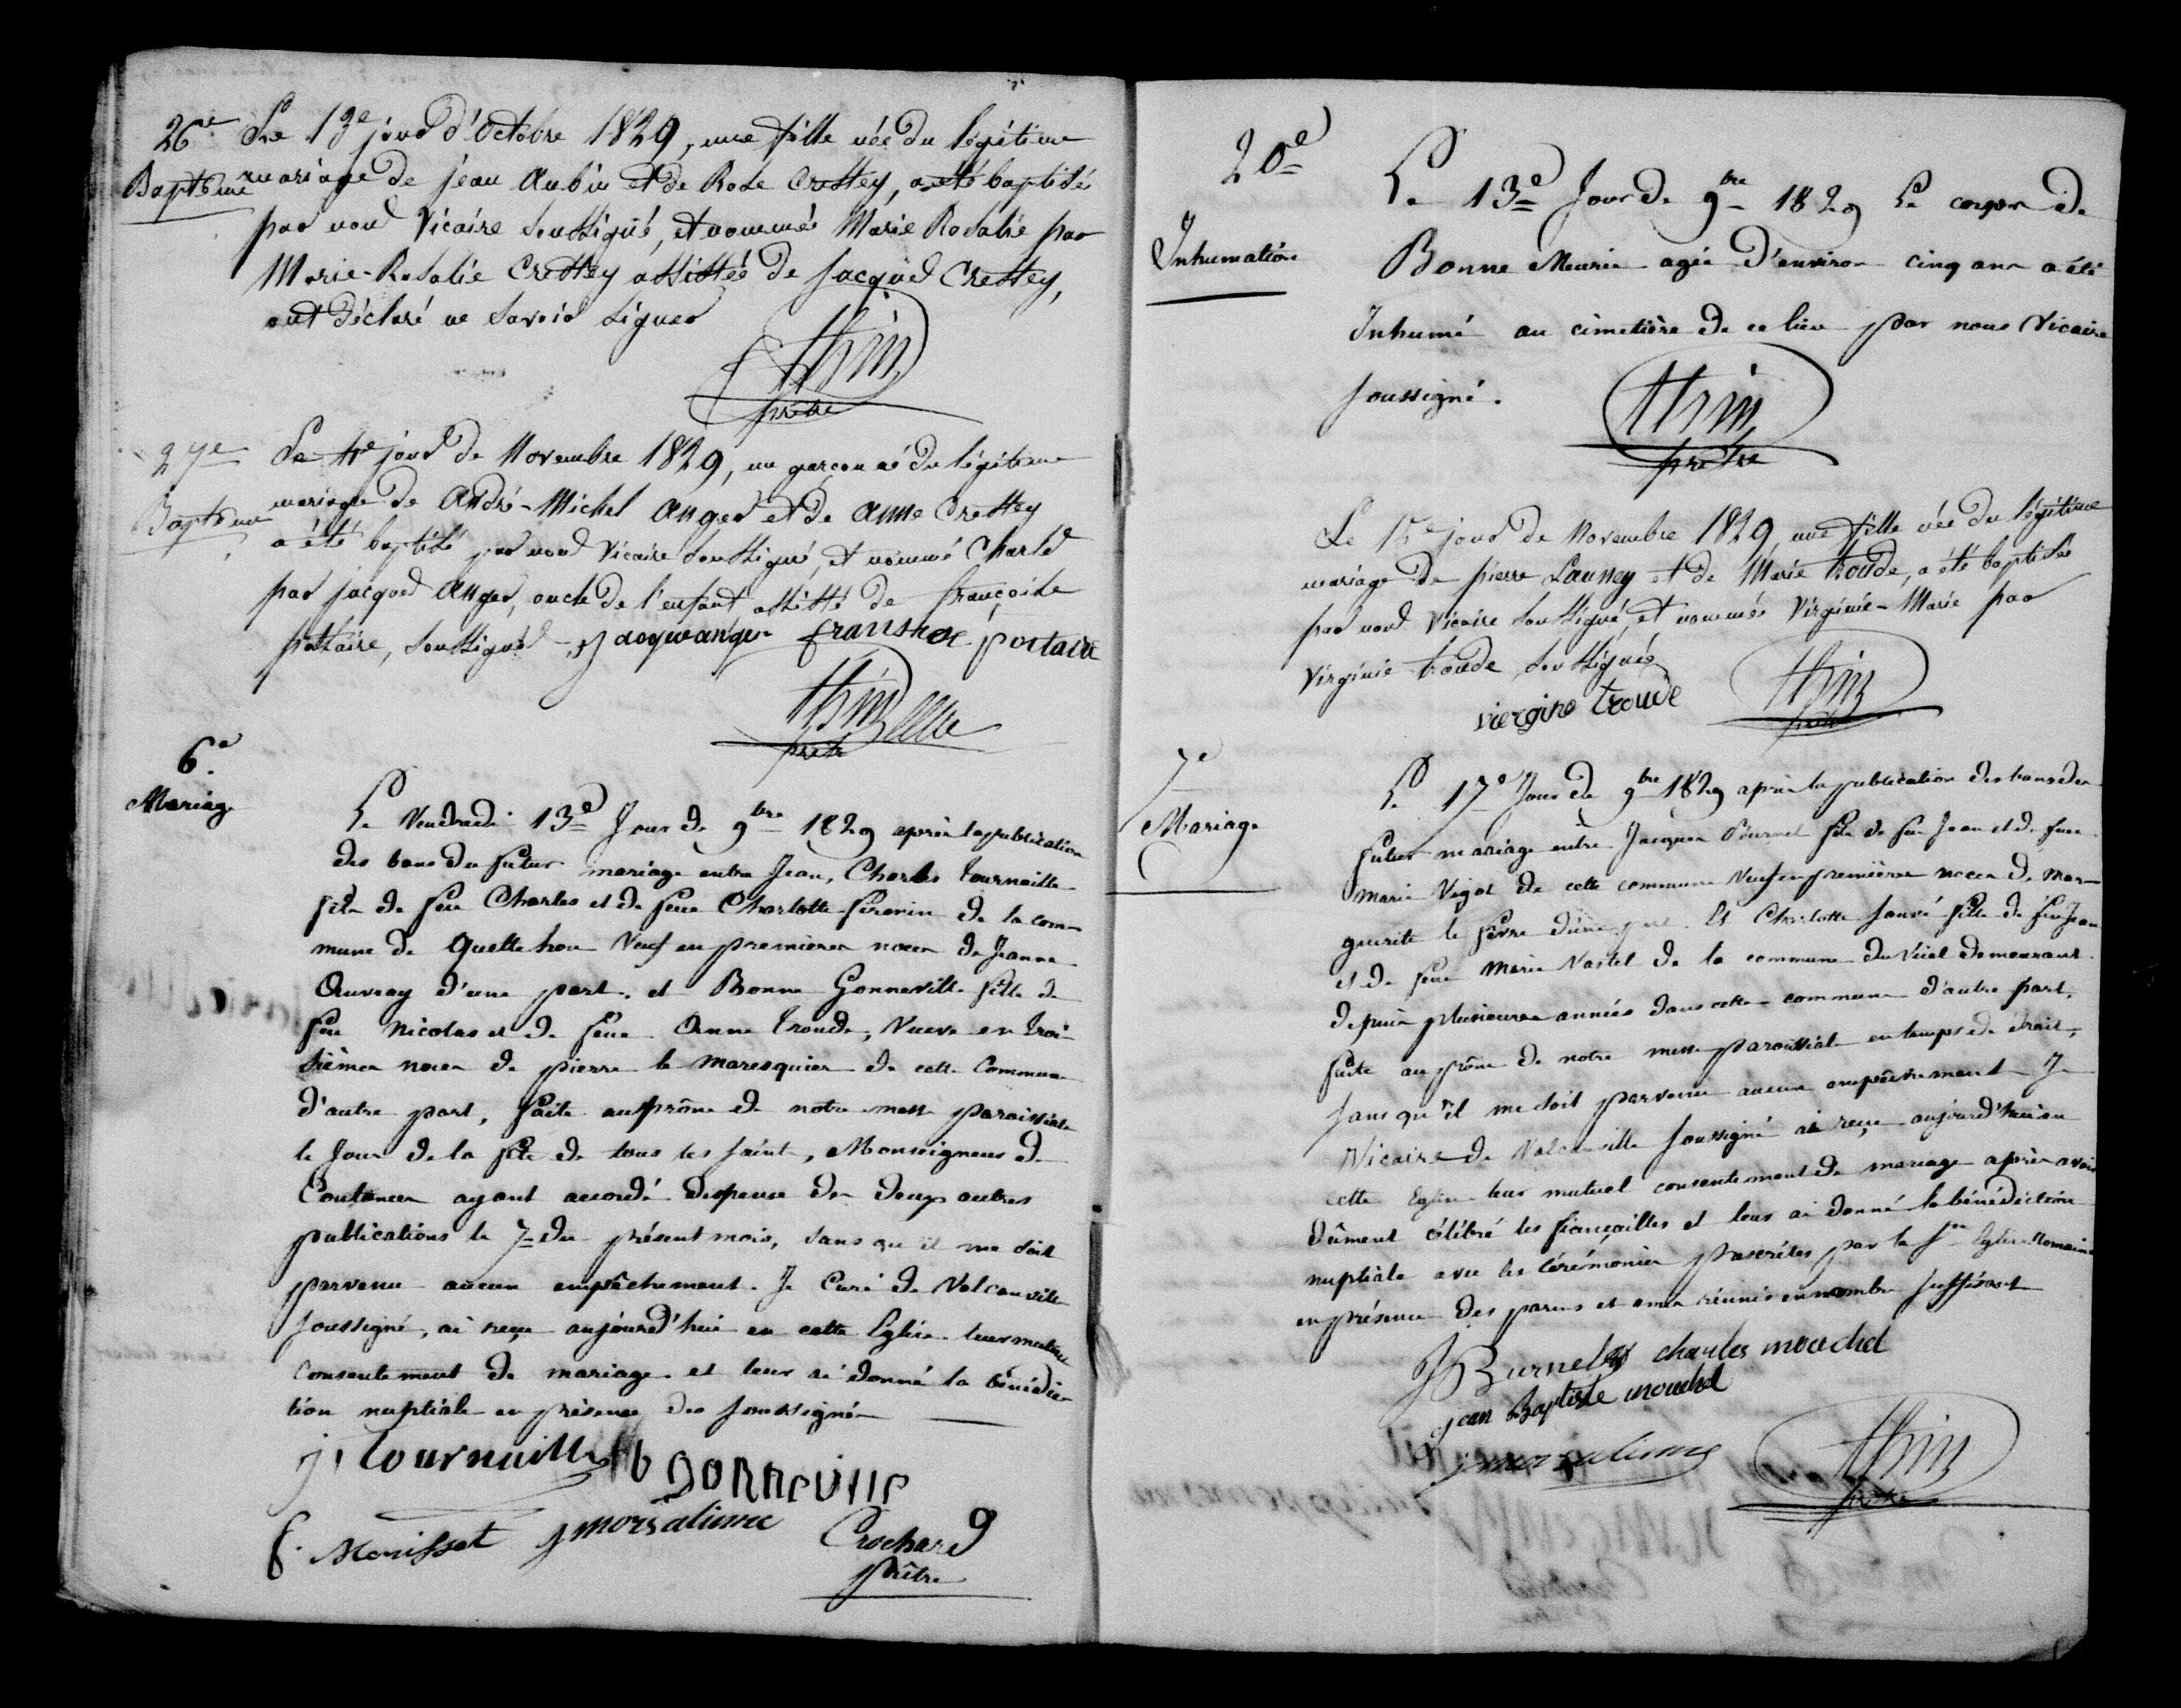 26e Le 13e jour d'Octobre 1829, une fille née du légitime
Baptême mariage de jean Aubin et de Rose Crestey, a été baptisée
par nous Vicaire soussigné, et nommée Marie Rosalie par
Marie-Rosalie Crestey assistée de jacques Crestey,
ont déclaré ne savoir signer
thin
prêtre
27e Le 4e jour de Novembre 1829, un garçon né du légitime
Baptême mariage de André-Michel Anger et de Anne Crestey
a été baptisé par nous Vicaire soussigné, et nommé Charles
par jacques Anger, oncle de l'enfant assisté de françoise
postaire, soussignés jacque anger fransoise postaire
thin
prêtre
6e
Mariage
Le Vendredi 13e Jour de 9bre 1829 après la publication
des bans du futur mariage entre Jean, Charles Tournaille
fils de feu Charles et de feue Charlotte firmin de la com-
mune de Quettehou Veuf en premières noces de Jeanne
Auvray d'une part. et Bonne Gonneville fille de
feu Nicolas et de feue Anne Troude, Veuve en troi-
sièmes noces de pierre le Maresquier de cette Commune
d'autre part, faite au prône de notre messe paroissiale
le Jour de la fête de tous les saint, Monseigneur de
Coutances ayant accordé dispense des deux autres
publications le 7 du présent mois, sans qu'il me soit
parvenu aucun empêchement. Je Curé de Valcanville
soussigné, ai reçu aujourd'hui en cette Eglise leur mutuel
consentement de mariage et leur ai donné la bénédic-
tion nuptiale en présence des soussignés
j. tournaille b gonneville
f. Monissot j morsalinne Crochard
prêtre
20e
Inhumation
Le 13e Jour de 9bre 1829 Le corps de
Bonne Meurie agée d'environ cinq ans a été
Inhumé au cimetière de ce lieu par nous Vicaire
soussigné.
thin
prêtre
Le 15e jour de Novembre 1829, une fille née du légitime
mariage de pierre Launey et de Marie troude, a été baptisée
par nous Vicaire soussigné, et nommée Virginie-Marie par
Virginie troude soussignée
viergine troude thin
prêtre
7e
Mariage
Le 17e Jour de 9bre 1829 après la publication des bans du
futur mariage entre Jacques Burnel fils de feu Jean et de feue
marie Vigot de cette commune Veuf en premières noces de Mar-
guerite le fèvre d'une part. Et Charlotte fauvé fille de feu Jean
et de feue Marie Vastel de la commune du Vicel demeurant
depuis plusieures années dans cette commune d'autre part,
faite au prône de notre messe paroissiale en temps de droit,
sans qu'il me soit parvenu aucun empêchement Je
Vicaire de Valcanville soussigné ai reçu aujourd'hui en
cette Eglise leur mutuel consentement de mariage après avoir
dûment célébré les fiançailles et leur ai donné la bénédiction
nuptiale avec les cérémonies prescrites par la Ste Eglise Romaine
en présence des parens et amis réunis en nombre suffisant
J Burnel charles mouchel
jean Baptiste mouchel
j morsalinne thin
prêtre